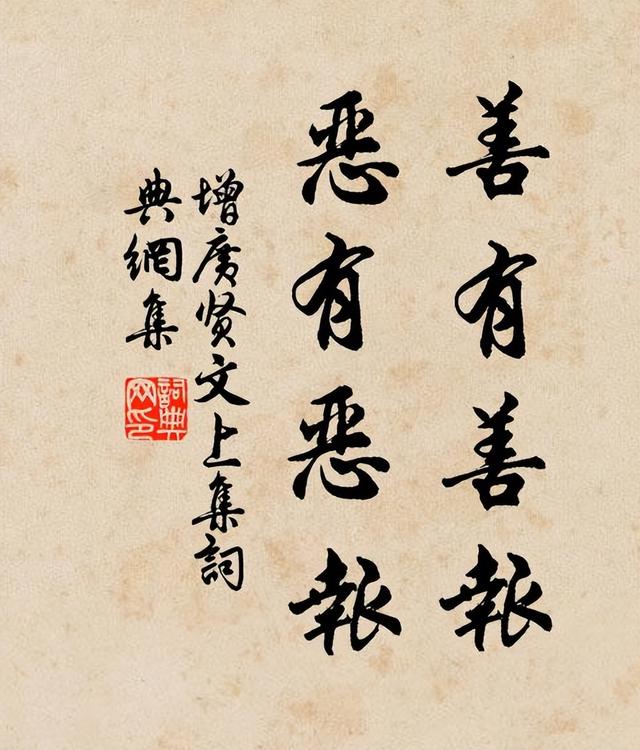 善有善報
惡有惡報
增廣贤文上集詞
典網集
詞典
网印